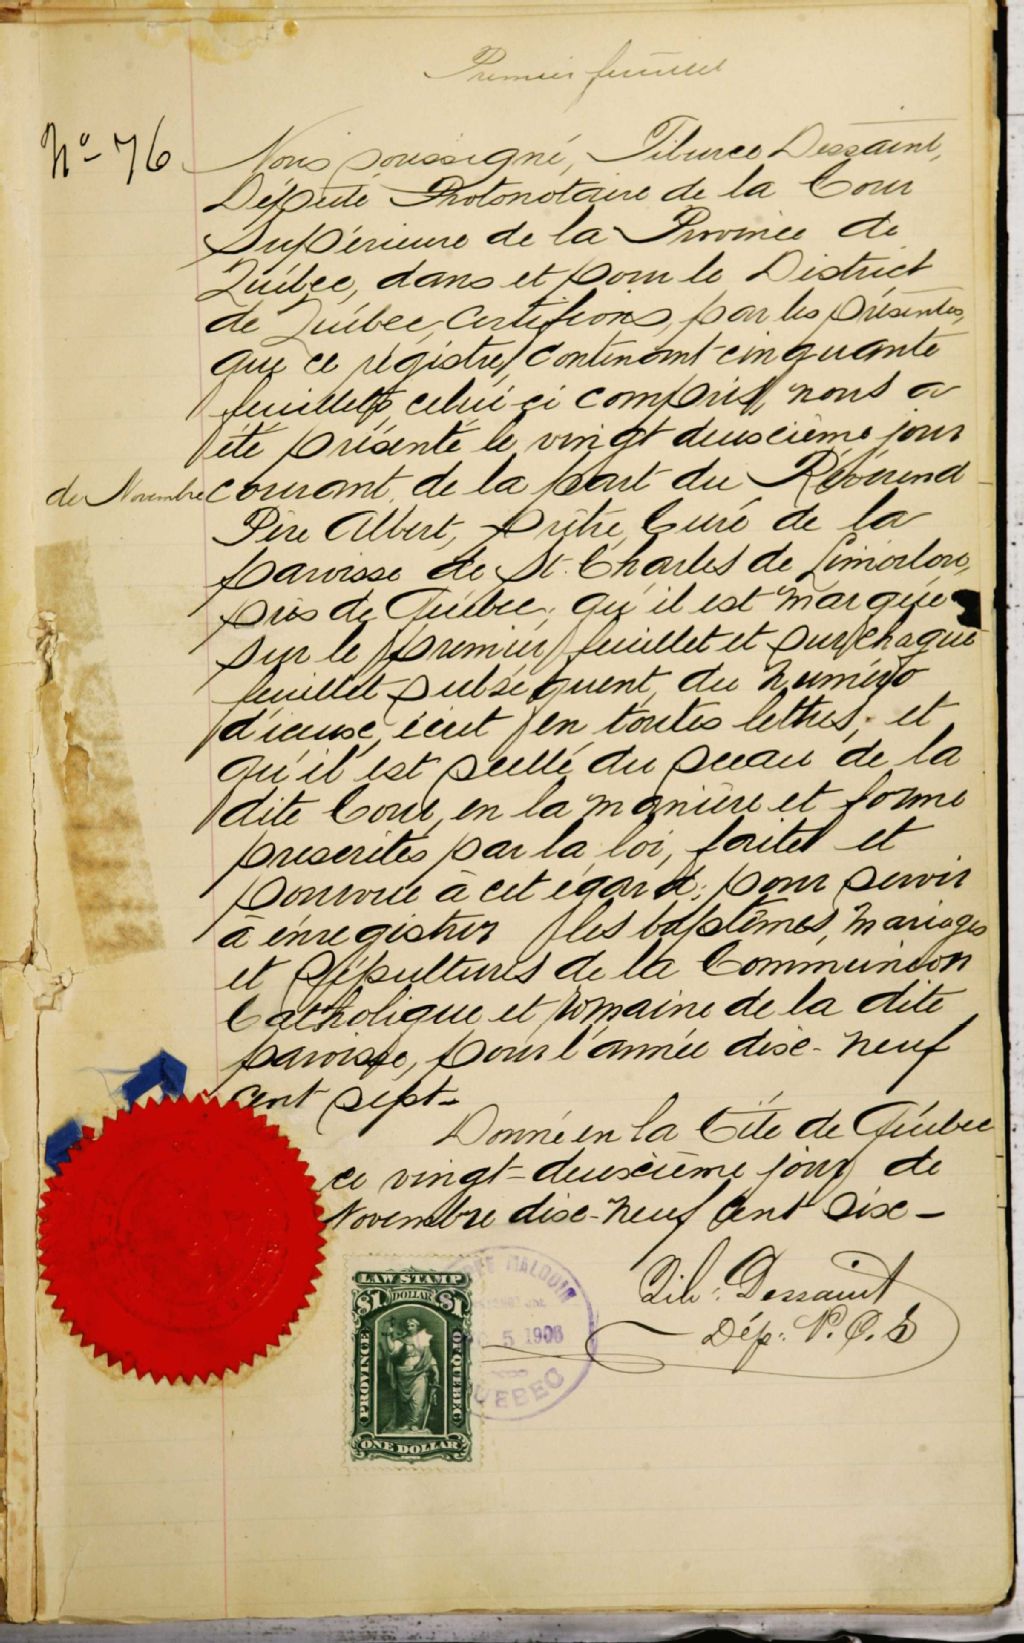 Premier feuillet
No- 76
Nous soussigné, Tiburce Dessaint,
Député Protonotaire de la Cour
Supérieure de la Province de
Québec, dans et pour le District
de Québec, certifions, par les présentes,
que ce régistre, contenant cinquante
feuillets, celui ci compris, nous a
été présenté le vingt deuxième jour
de Novembre courant, de la part du Révérend
Père Albert, prêtre, Curé de la
paroisse de St. Charles de Limoilou,
près de Québec; qu'il est marqué
sur le premier feuillet et sur chaque
feuillet subséquent, du numéro
d'iceux, écrit en toutes lettres; et
qu'il est scellé du sceau de la
dite Cour, en la manière et forme
prescrites par la loi, faite et
pourvue à cet égard; pour servir
à énregistrer les baptêmes, mariages
et sépultures de la Communion
Catholique et romaine de la dite
paroisse, pour l'année dix-neuf
cent sept-
Donné en la Cité de Québec
ce vingt-deuxième jour de
Novembre dix-neuf cent six-
Tib: Dessaint
Dép: P. C. S
LAW STAMP
$1 DOLLAR $1
PROVINCE OF QUEBEC
ONE DOLLAR
MALOUIN
5 1906
QUEBEC